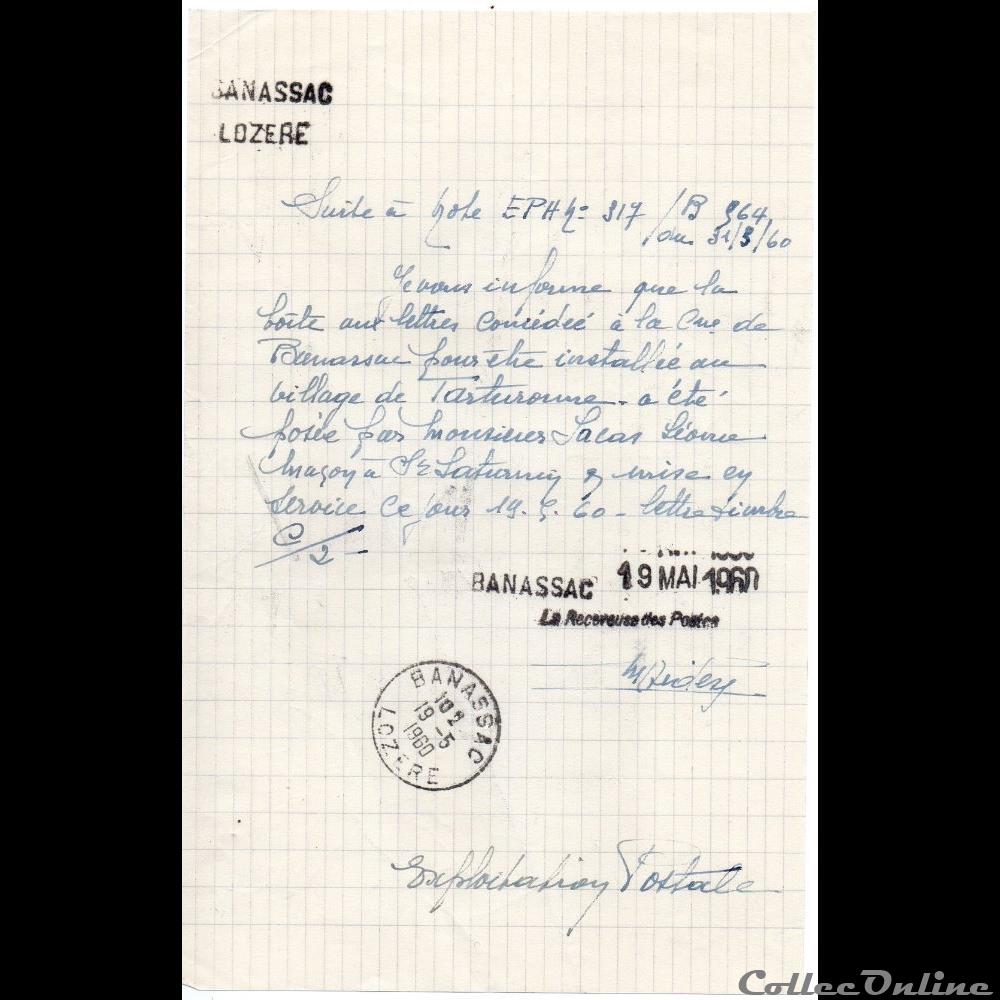 BANASSAC
LOZERE
Suite à Note EPH N= 317 / B 364
du 31/3/60
Je vous informe que la
boîte aux lettres concédée à la Cne de
Banassac pour être installée au
village de Tartaronne - a été
posée par Monsieur Léonce
Maçon à St Saturnin & mise en
service ce jour 19.5.60 - lettre timbre
C/2 -
BANASSAC 19 MAI 1960
La Receveuse des Postes
BANASSAC
10 2
19 -5
1960
LOZERE
Exploitation Postale
CollecOnline